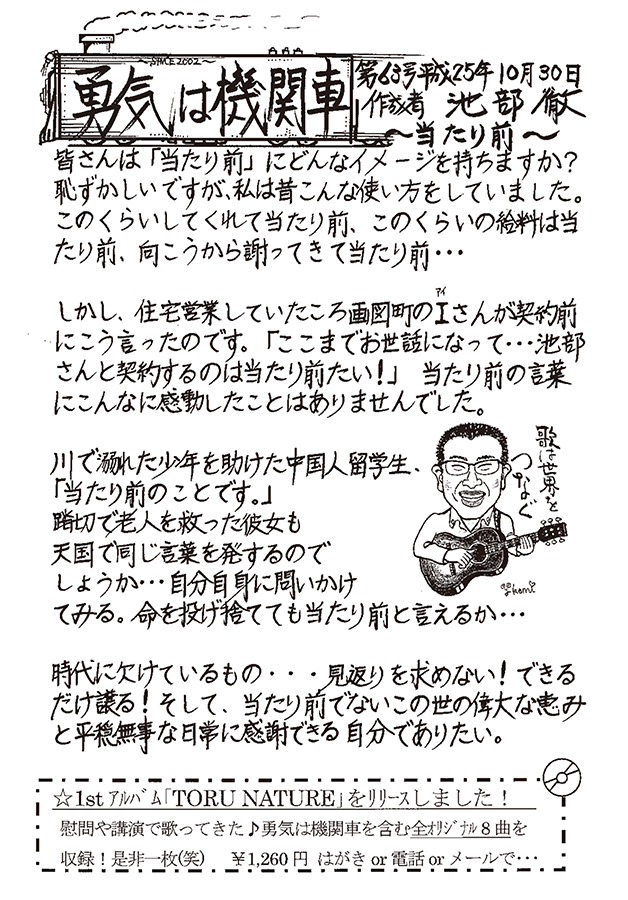 ～SINCE2002～
勇気は機関車
第63号平成25年10月30日
作成者 池部 徹
～当たり前～
皆さんは「当たり前」にどんなイメージを持ちますか?
恥ずかしいですが、私は昔こんな使い方をしていました。
このくらいしてくれて当たり前、このくらいの給料は当
たり前、向こうから謝ってきて当たり前・・・
しかし、住宅営業していたころ画図町のIさんが契約前
アイ
にこう言ったのです。「ここまでお世話になって・・・池部
さんと契約するのは当たり前たい!」 当たり前の言葉
にこんなに感動したことはありませんでした。
川で溺れた少年を助けた中国人留学生、
「当たり前のことです。」
踏切で老人を救った彼女も
天国で同じ言葉を発するので
しょうか・・・自分自身に問いかけ
てみる。命を投げ捨てても当たり前と言えるか・・・
歌は世界を
つなぐ
時代に欠けているもの・・・見返りを求めない!できる
だけ譲る!そして、当たり前でないこの世の偉大な恵み
と平穏無事な日常に感謝できる自分でありたい。
☆1stアルバム「TORU NATURE」をリリースしました!
慰問や講演で歌ってきた♪勇気は機関車を含む全オリジナル8曲を
収録!是非一枚(笑) ￥1,260円 はがきor電話orメールで・・・